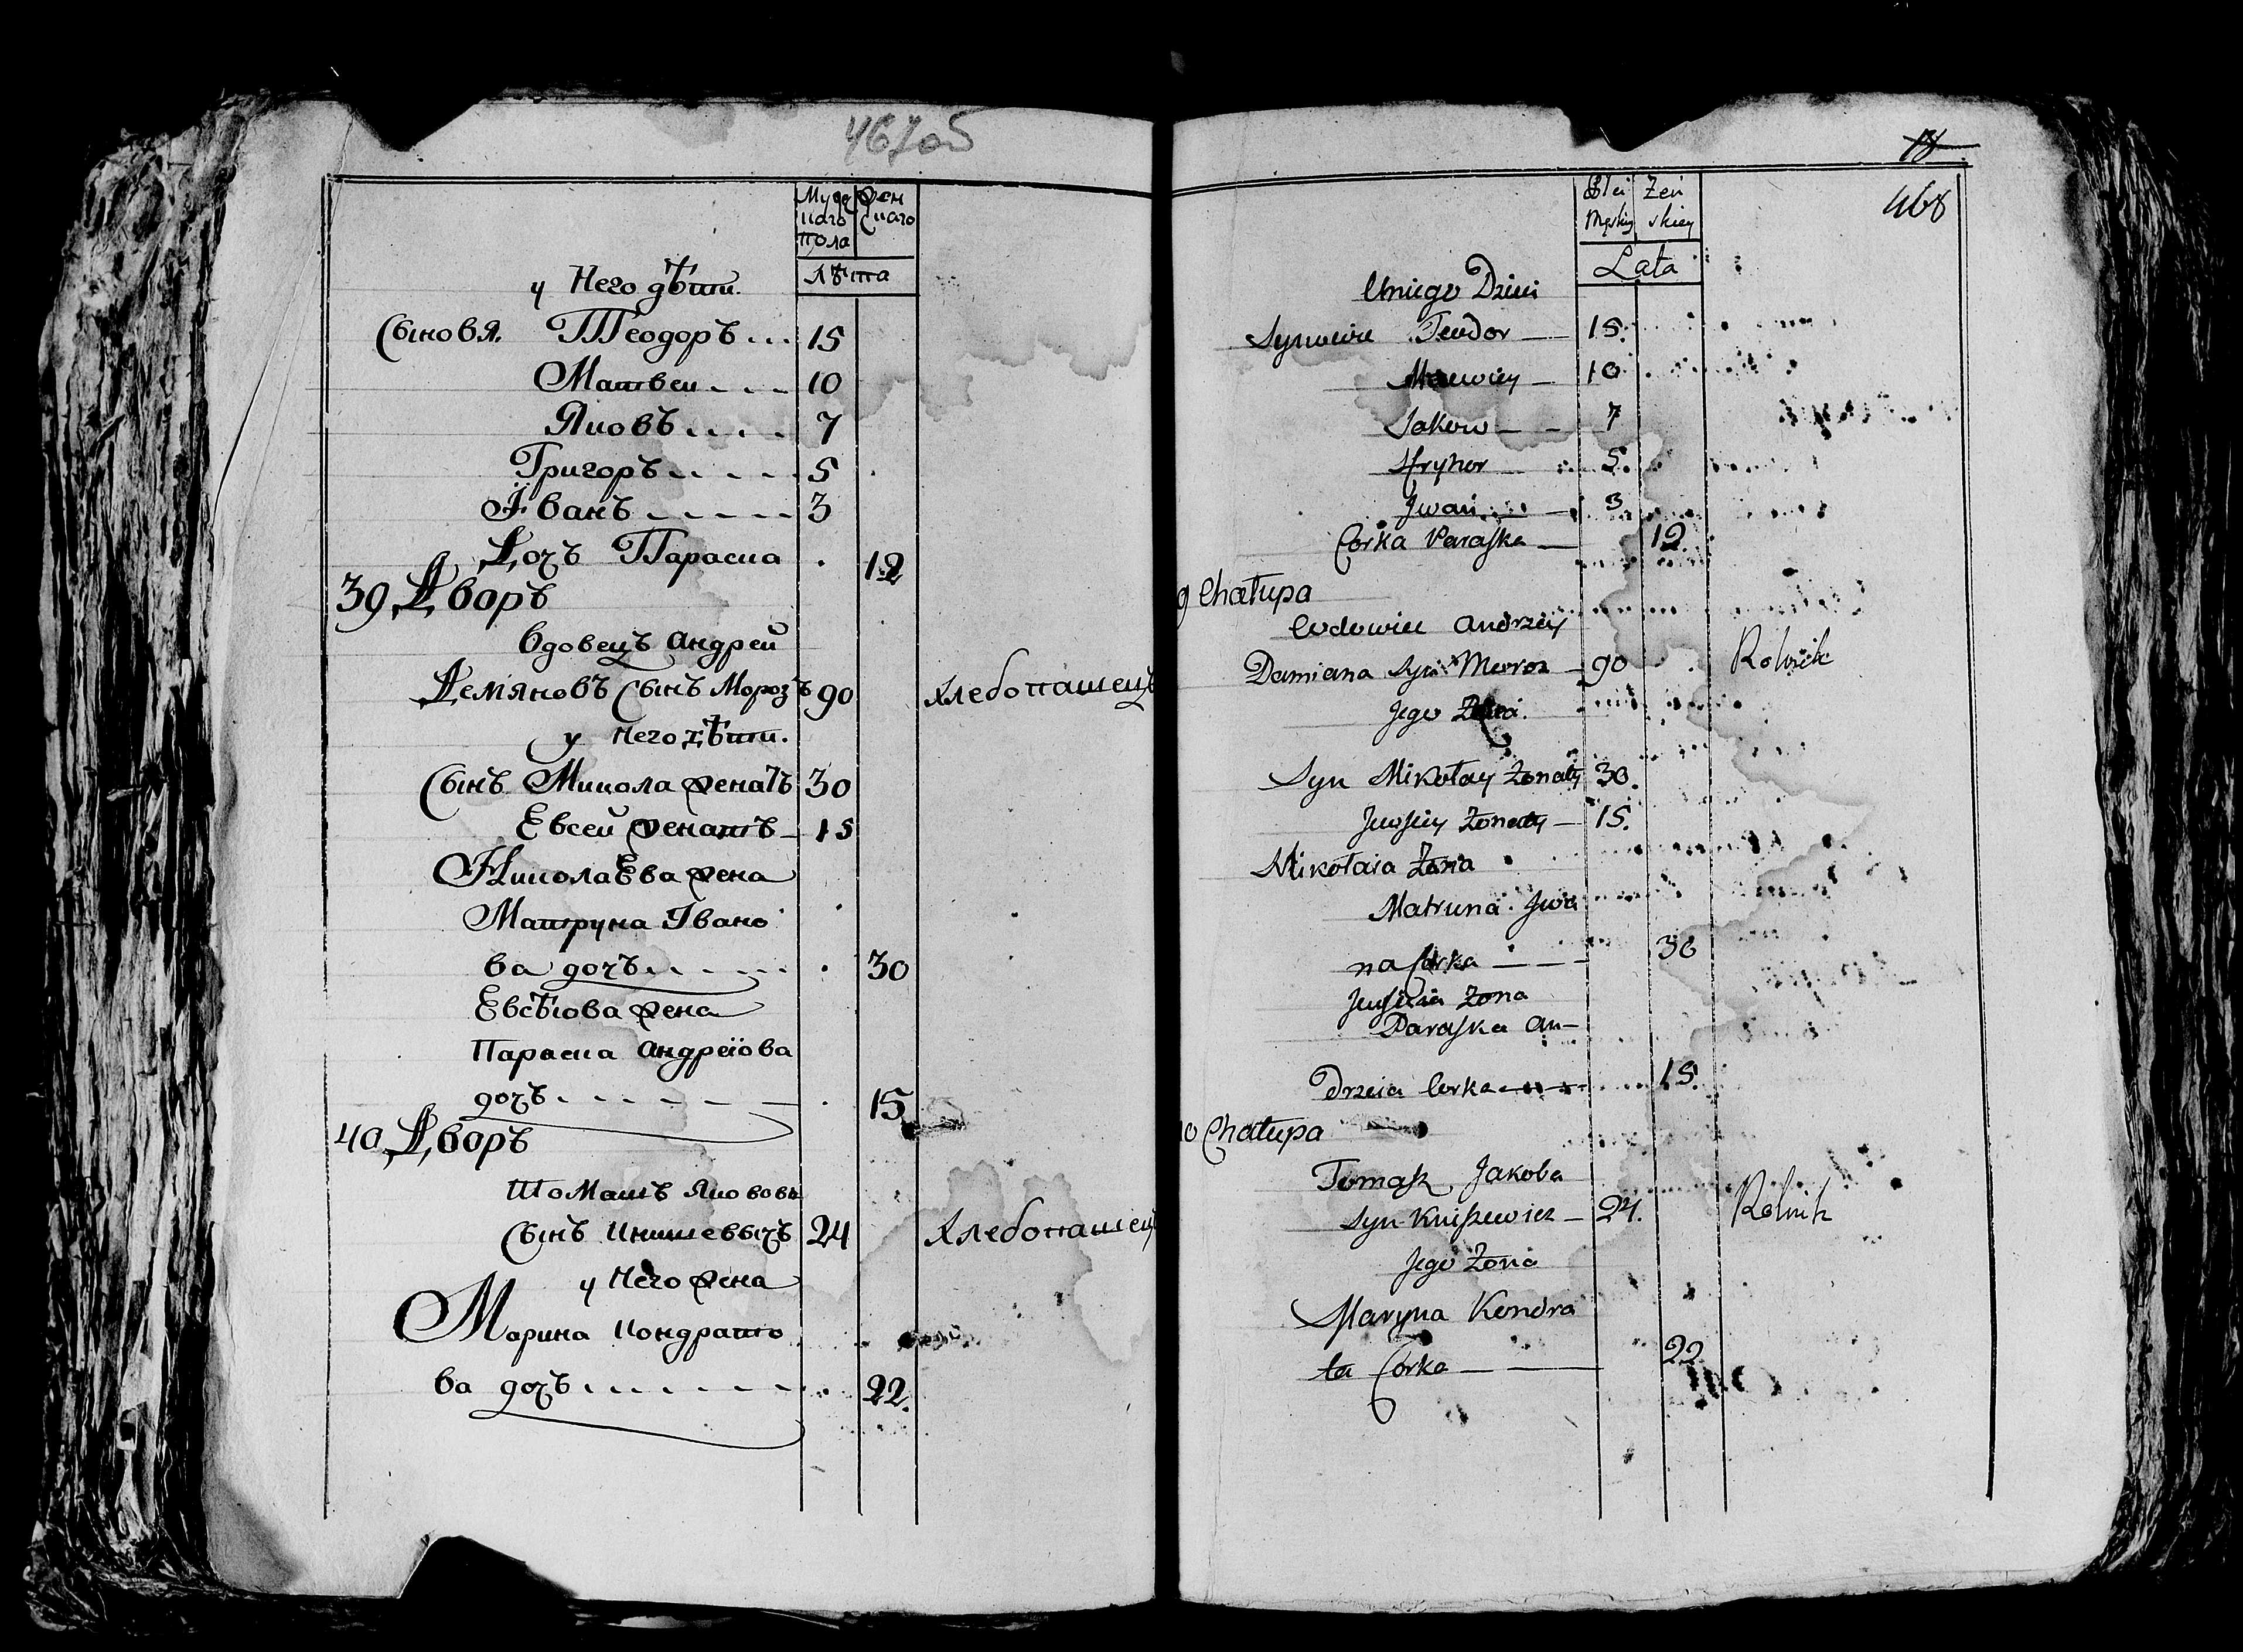 467об
Мужескаго пола
Женскаго
Лѣта
у Него дѣти.
Сыновя. Теодоръ... 15
Матвеи.... 10
Яковъ.... 7
Григоръ..... 5
Іванъ..... 3
Дочъ Параска 12
39 Дворъ
Вдовецъ Андрей
Демяновъ Сынъ Морозъ 90 Хлебопашецъ
у Него дѣти.
Сынъ Микола женатъ 30
Евсей женатъ 15
Николаева жена
Матруна Івано
ва дочъ..... 30
Евсѣіова жена
Параска Андреіова
дочъ...... 15
40 Дворъ
Томашъ Якововъ
Сынъ Книшевычъ 24 Хлебопашец
у Него жена
Марина Кондрато
ва дочъ....... 22.
18
468
Płci Męskiy
Żeń skiey
Lata
U niego Dzieci
Synowie Teodor — 15.
Matwiey — 10
Jakow — 7
Hryhor — 5.
Jwan — 3
Corka Paraska — 12.
9 Chałupa
Wdowiec Andrzey
Damiana Syn Moroz — 90 Rolnik
Jego
Syn Mikołay Żonaty 30.
Jewsiey Żonaty — 15.
Mikołaia Żona
Matruna Jwa
na Corka — 30
Jewsieia Żona
Paraska An—
drzeia Corka 15.
10 Chałupa
Tomasz Jakoba
Syn Kniszewicz — 24. Rolnik
Jego Żona
Maryna Kondra
ta Corka — 22